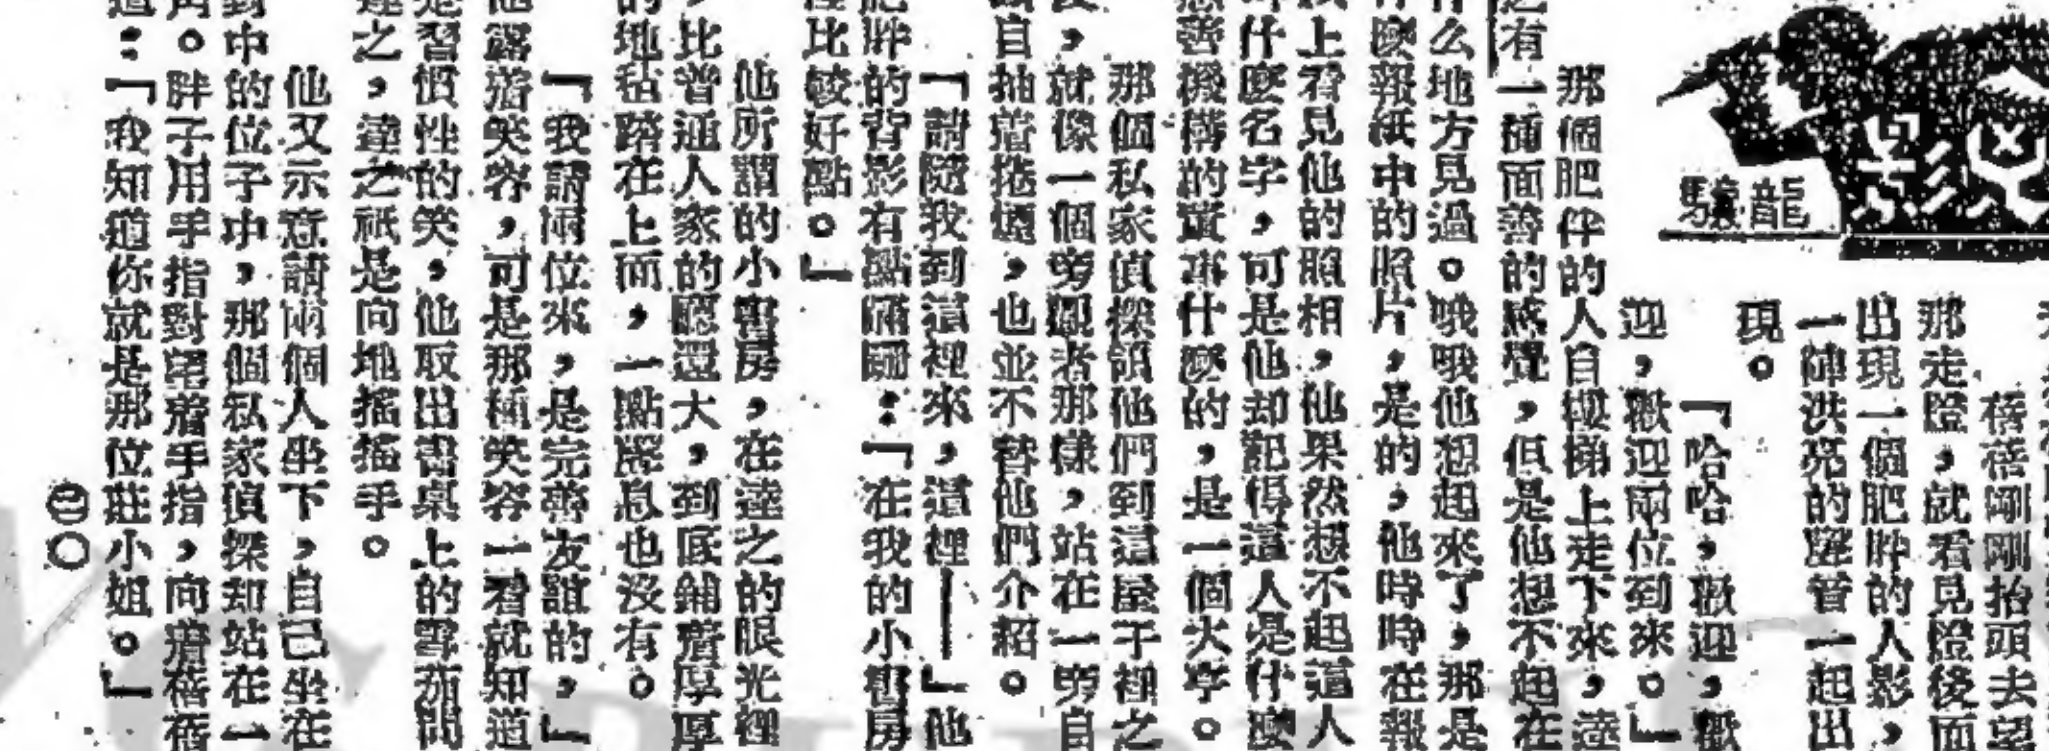 蓓蓓剛剛抬頭去望
那走膛,就看見膛後面
出現一個肥胖的人影,
一陣洪亮的聲音一起出
現。
「哈哈,歡迎,歡
迎,歡迎兩位到來。」
那個肥胖的人自樓梯上走下來,達
之有一種面善的感覺,但是他想不起在
什么地方見過。哦哦他想起來了,那是
什麼報紙中的照片,是的,他時時在報
紙上看見他的照相,他果然想不起這人
叫什麼名字,可是他却記得這人是什麼
慈善機構的董事什麼的,是一個大亨。
那個私家偵探領他們到這屋子裡之
後,就像一個旁觀者那樣,站在一旁自
顧自抽着捲煙,也並不替他們介紹。
「請隨我到這裡來,這裡——」他
肥胖的背影有點滑稽:「在我的小書房
裡比較好點。」
他所謂的小書房,在達之的眼光裡
,比普通人家的廳還大,到底鋪着厚厚
的地毡踏在上面,一點聲息也沒有。
「我請兩位來,是完善友誼的,」
他露着笑容,可是那種笑容一看就知道
是習慣性的笑,他取出書桌上的雪茄問
達之,達之祇是向地搖搖手。
他又示意請兩個人坐下,自己坐在
對中的位子中,那個私家偵探却站在一
角。胖子用手指對望着手指,向着蓓蓓
道:「我知道你就是那位莊小姐。」
㊁〇
龍驤